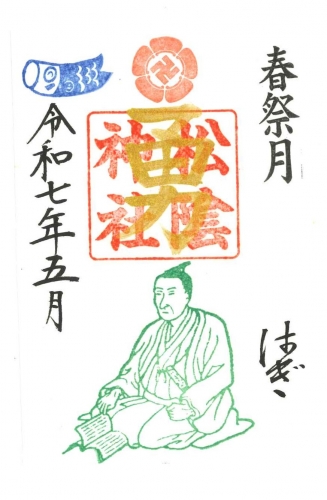 春祭月
松陰
神社
令和七年五月
はぎ